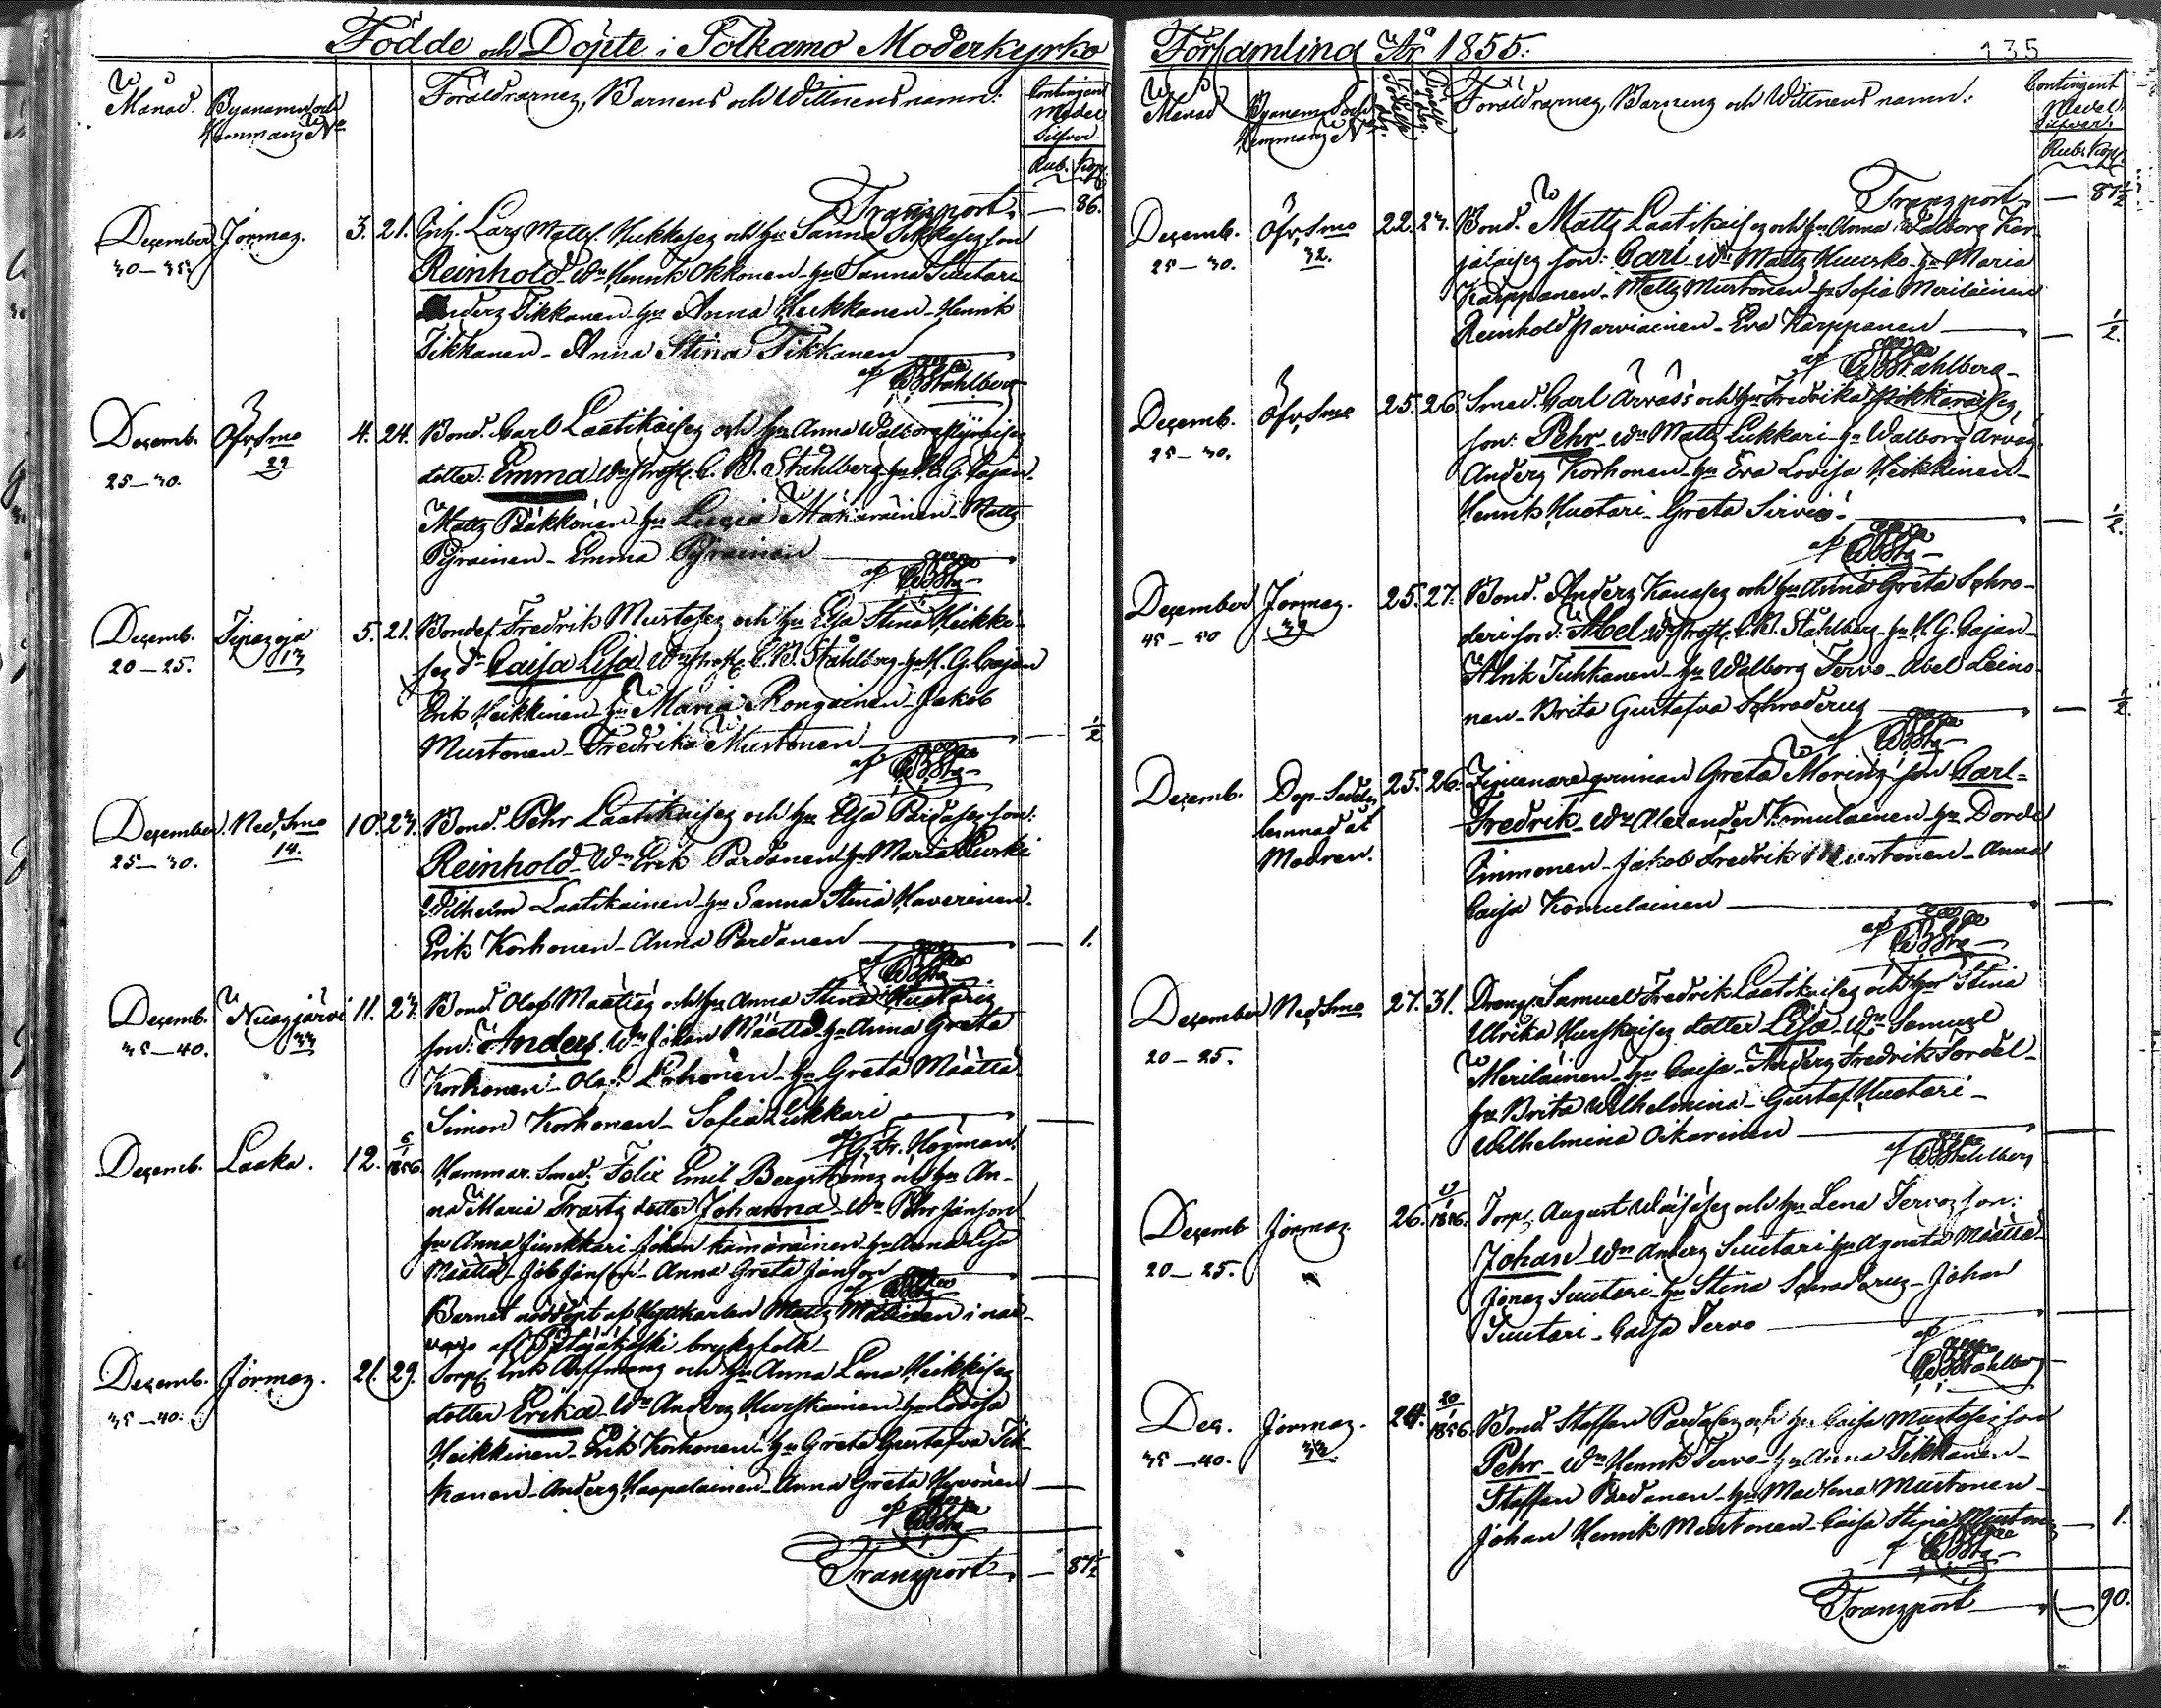 Födde och Döpte i Sotkamo Moderkyrko
Månad. Byanamn och Hemmans No
Föräldrarnes, Barnens och Wittnens namn:
Contingent Medel Silfver.
Rub. Kop.
Transport. — 86.
December Jormas. 3. 21. Lars Matts. Hukkasen och hu Sanna Tikkasen son
30—35. Reinhold Wn Henrik Okkonen hu Sanna Suutari
Anders Tikkanen hu Anna Heikkanen Henrik
Tikkanen - Anna Stina Tikkanen
af CBStåhlberg
Decemb. Öfv. Smo 4. 24. Bond. Carl Laatikaisen och hu Anna Walborg Pyräisen
25—30. 22 dotter: Emma Wn Prost. C. B. Ståhlberg hu H. G. Cajan
Matts Pääkkönen hu Lucia Mäkäräinen Matts
Pyräinen - Emma Pyräinen
af CBStg
Decemb. Tipasoja 5. 21. Bonden Fredrik Mustosen och hu Elsa Stina Heikki-
20—25. 13 sen dr Caisa Lisa Wn Prost. C. B. Ståhlberg hu H. G. Cajan
Erik Heikkinen hu Maria Rongainen Jakob
Mustonen - Fredrika Mustonen — ½
af CBStg
December Ned. Smo 10. 23. Bond. Pehr Laatikaisen och hu Elsa Pardasen son:
25—30. 14. Reinhold Wn Erik Pardanen hu Maria Kurki
Wilhelm Laatikainen hu Sanna Stina Haverinen.
Erik Korhonen - Anna Pardanen — 1.
af CBStg
Decemb. Nuasjärvi 11. 23. Bond. Olof Määttäs och hu Anna Stina Huotaris
35—40. 33 son: Anders. Wn Johan Määttä hu Anna Greta
Korhonen - Olof Korhonen hu Greta Määttä
Simon Korhonen - Sofia Lukkari —
af G. Fr. Högman.
Decemb. Laaka. 12. 6/1 1856. Hammar. Smed. Felix Emil Bergströms och hu An-
na Maria Trasts dotter Johanna Wn Pehr Janson
hu Anna Junkkari Johan Kämäräinen hu Anna Lisa
Määttä - Job Janson - Anna Greta Janson —
af CBStg
Barnet nöddöpt af Hyttkarlen Matts Mälinen i när-
varo af Petäjäkoski bruksfolk
Decemb. Jormas. 21. 29. Torp. Erik Aiffmans och hu Anna Lena Heikkisen
35—40. dotter Erika Wn Anders Hurskainen hu Lovisa
Heikkinen - Erik Korhonen hu Greta Gustafva Tik-
kanen - Anders Haapalainen - Anna Greta Hyvönen —
af CBStg
Transport. — 87½
Församling År 1855. 135
Månad Byanamn och Hemmans No
Föräldrarnes, Barnens och Wittnens namn:
Contingent Medel Silfver.
Rub. Kop.
Transport — 87½
Decemb. Öfv. Smo 22. 23. Bond. Matts Laatikaisen och hu Anna Walborg Kar-
25—30. 32. jalaisen son: Carl Wn Matts Huusko hu Maria
Karppanen - Matts Mustonen hu Sofia Meriläinen
Reinhold Parviainen - Eva Karppanen — ½
af CBStåhlberg
Decemb. Öfv. Smo 25. 26. Smed. Carl Arvas's och hu Fredrika Pikkaraisen,
25—30. son: Pehr Wn Matts Lukkari hu Walborg Arvas
Anders Korhonen hu Eva Lovisa Heikkinen
Henrik Huotari - Greta Sirviö — ½
af CBStg
December Jormas. 25. 27. Bond. Anders Kanasen och hu Anna Greta Schro-
45—50 32 deri son: Abel Wn Prost. C. B. Ståhlberg hu H. G. Cajan
Alrik Tuhkanen hu Walborg Tervo - Abel Leino-
nen - Brita Gustafva Schroderus — ½
af CBStg
Decemb. Dop-Sedeln lemnad åt Modren. 25. 26. Zigenare qvinnan Greta Morins son Carl-
Fredrik Wn Alexander Komulainen hu Dorde
Timmonen - Jakob Fredrik Mustonen - Anna
Caisa Komulainen —
af CBStg
December Ned. Smo 27. 31. Drengen Samuel Fredrik Laatikaisen och hu Stina
20—25. Ulrika Hurskaisen dotter Lisa Wn Samuel
Meriläinen hu Caisa - Anders Fredrik Tordel-
hu Brita Wilhelmina - Gustaf Huotari -
Wilhelmina Oikarinen —
af CBStåhlberg
Decemb Jormas 26. 19/1 1856. Torp. August Wäisäsen och hu Lena Tervos son:
20—25. Johan Wn Anders Suutari hu Agneta Määttä
Jonas Suutari hu Stina Schroderus - Johan
Suutari - Caisa Tervo —
af CBStåhlberg
Dec. Jormas. 24. 20/1 1856. Bond. Staffan Pardasen och hu Caisa Mustosen son
35—40. 33 Pehr Wn Henrik Tervo hu Anna Tikkanen
Staffan Pardanen hu Madlena Mustonen
Johan Henrik Mustonen - Caisa Stina Mustonen — 1.
af CBStg
Transport — 90.